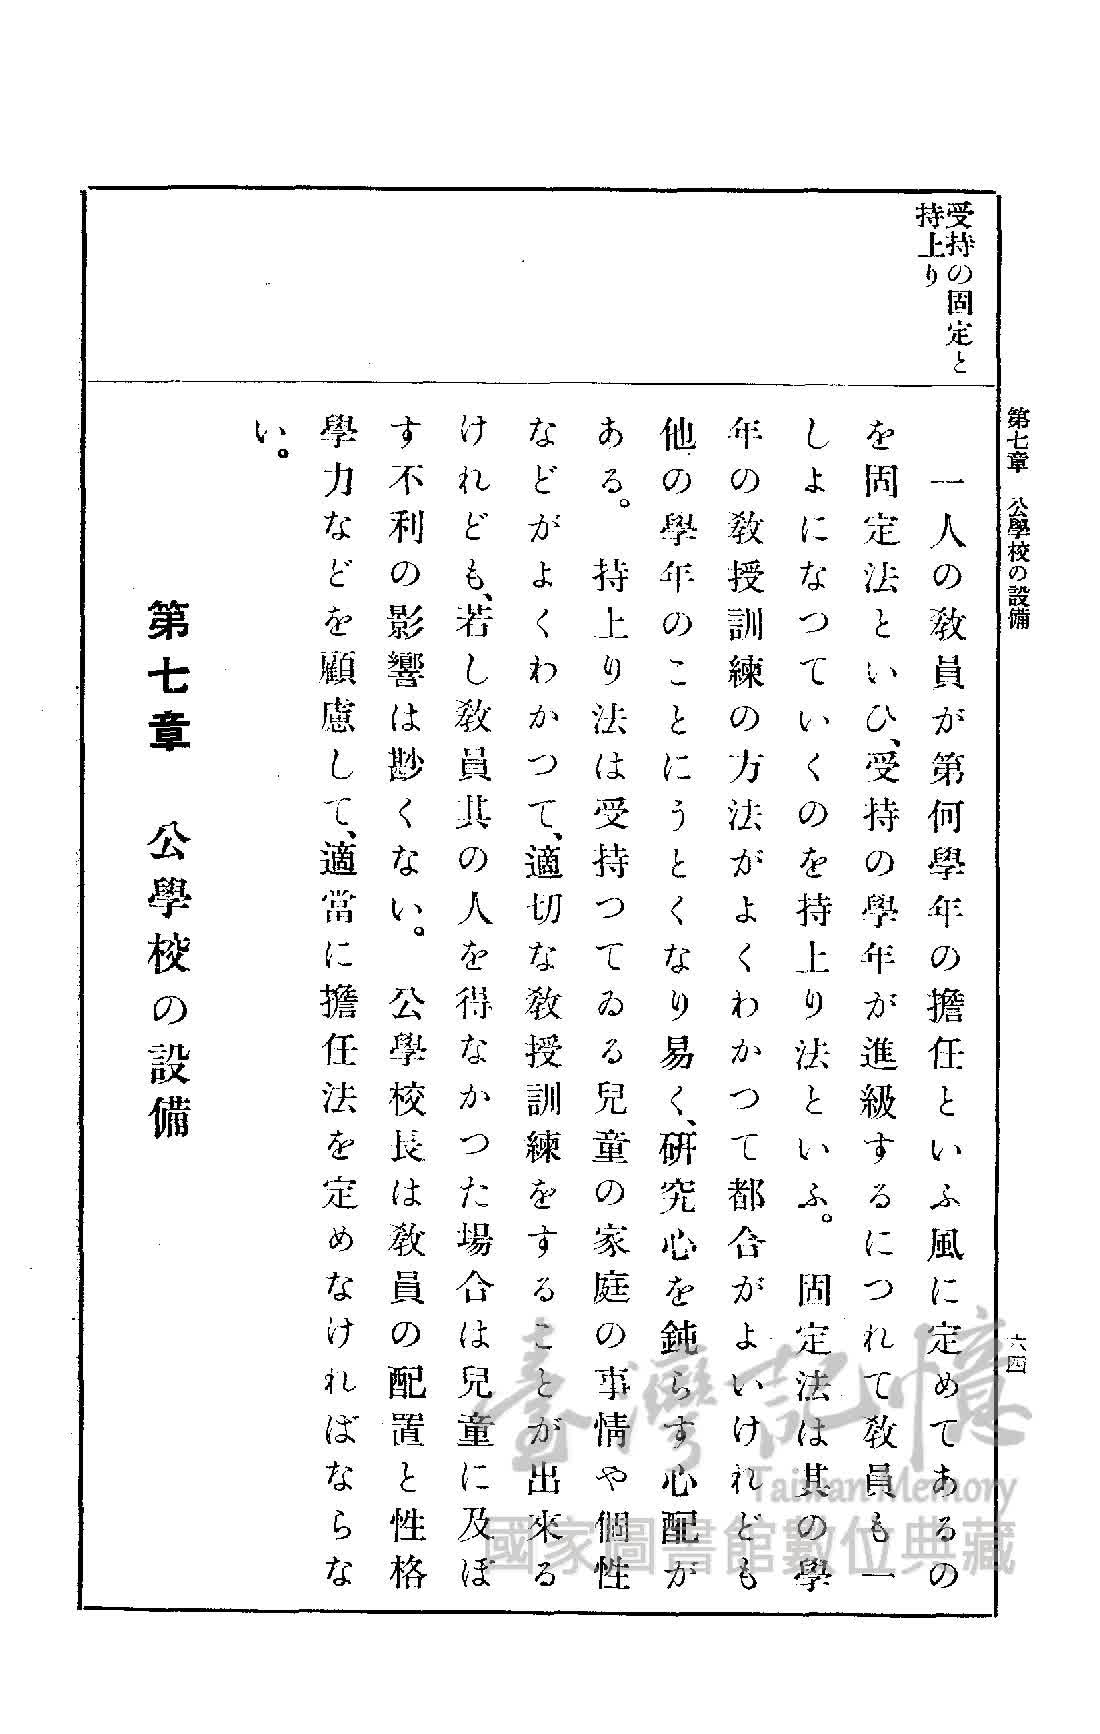 第七章　公學校の設備
六四
受持の固定と
持上り
一人の敎員が第何學年の擔任といふ風に定めてあるの
を固定法といひ、受持の學年が進級するにつれて敎員も一
しよになつていくのを持上り法といふ。固定法は其の學
年の敎授訓練の方法がよくわかつて都合がよいけれども
他の學年のことにうとくなり易く、硏究心を鈍らす心配が
ある。持上り法は受持つてゐる兒童の家庭の事情や個性
などがよくわかつて、適切な敎授訓練をすることが出來る
けれども、若し敎員其の人を得なかつた場合は兒童に及ぼ
す不利の影響は尠くない。公學校長は敎員の配置と性格
學力などを顧慮して、適當に擔任法を定めなければならな
い。
第七章　公學校の設備
臺灣記憶
Taiwan Memory
國家圖書館數位典藏